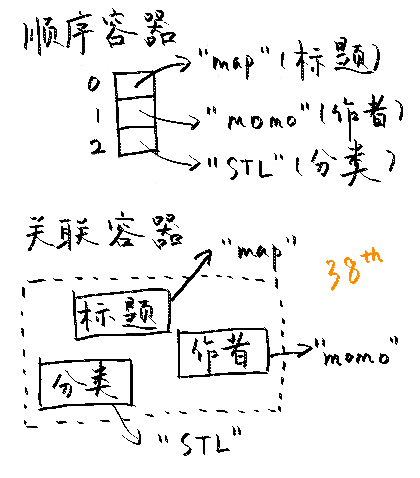 顺序容器
0 "map"(标题)
1 "momo"(作者)
2 "STL"(分类)
关联容器
"map"
38th
标题
作者
"momo"
分类
"STL"